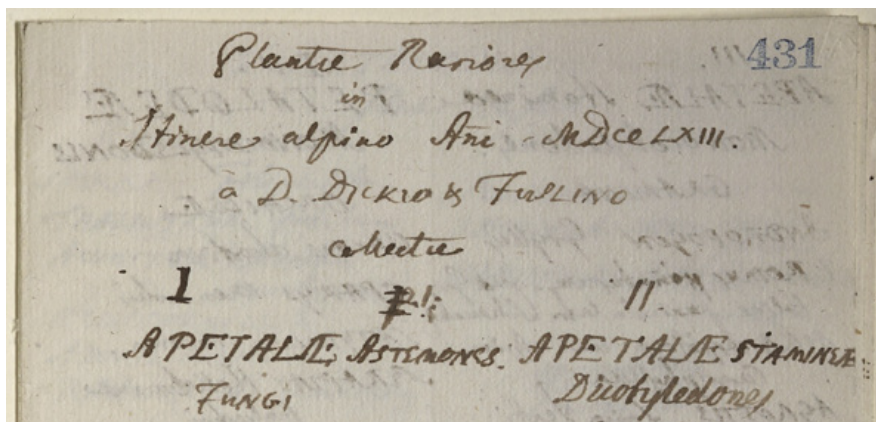 431
Plantæ Rariores
in
Itinere alpino Añi MDCCLXIII.
à D. DICKIO & FUSLINO
collectæ
1 11
APETALÆ ASTEMONES. APETALÆ STAMINEÆ
FUNGI Dicotyledones